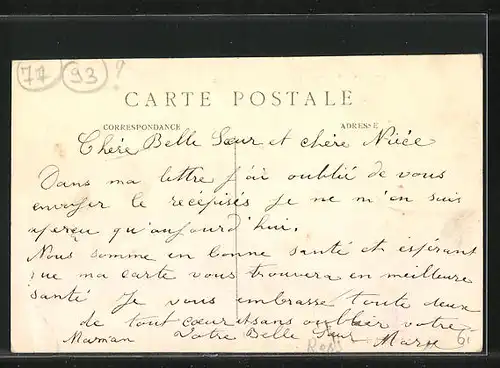 77 93 ?
CARTE POSTALE
CORRESPONDANCE ADRESSE
Chére Belle Sœur et chére Niéce
Dans ma lettre j'ai oublié de vous
envoyer le recépisés je ne m'en suis
aperçu qu'aujourd'hui.
Nous somme en bonne santé et espérant
que ma carte vous trouvera en meilleure
santé Je vous embrasse toute deux
de tout cœur et sans oublier votre
Maman Votre Belle Sœur Marie